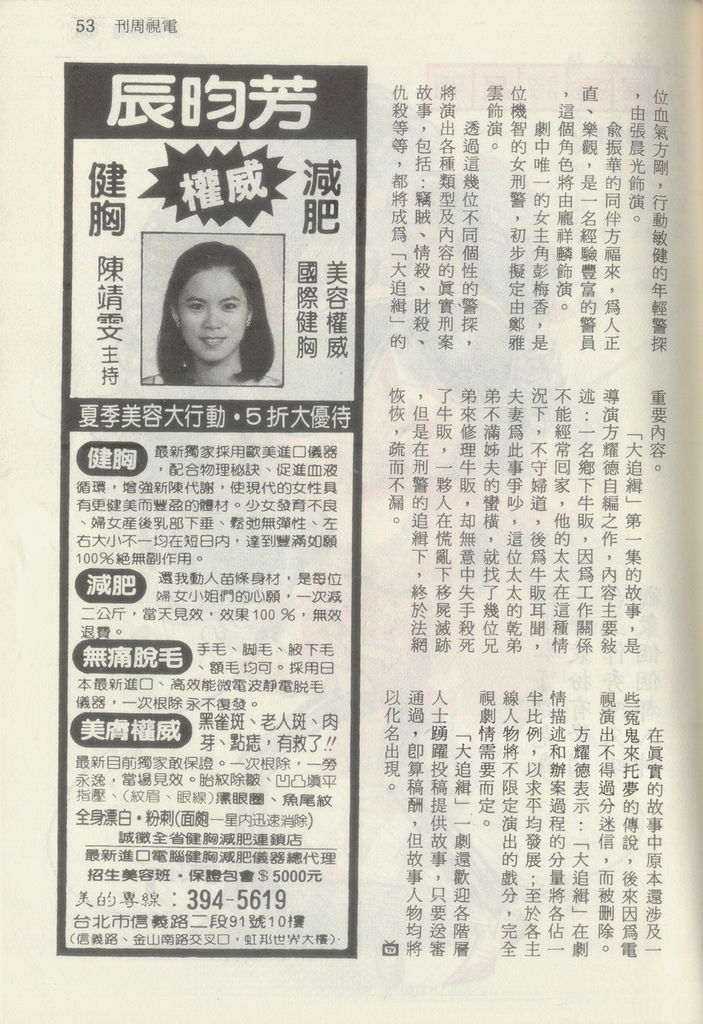 53 刊周視電
位血氣方剛，行動敏健的年輕警探
，由張晨光飾演。
俞振華的同伴方福來，爲人正
直、樂觀，是一名經驗豐富的警員
，這個角色將由龐祥麟飾演。
劇中唯一的女主角彭梅香，是
位機智的女刑警，初步擬定由鄭雅
雲飾演。
透過這幾位不同個性的警探，
將演出各種類型及內容的眞實刑案
故事，包括：竊賊、情殺、財殺、
仇殺等等，都將成爲「大追緝」的
重要內容。
「大追緝」第一集的故事，是
導演方耀德自編之作，內容主要敍
述：一名鄉下牛販，因爲工作關係
不能經常回家，他的太太在這種情
況下，不守婦道，後爲牛販耳聞，
夫妻爲此事爭吵，這位太太的乾弟
弟不滿姊夫的蠻橫，就找了幾位兄
弟來修理牛販，却無意中失手殺死
了牛販，一夥人在慌亂下移屍滅跡
，但是在刑警的追緝下，終於法網
恢恢，疏而不漏。
在眞實的故事中原本還涉及一
些冤鬼來托夢的傳說，後來因爲電
視演出不得過分迷信，而被刪除。
方耀德表示：「大追緝」在劇
情描述和辦案過程的分量將各佔一
半比例，以求平均發展；至於各主
線人物將不限定演出的戲分，完全
視劇情需要而定。
「大追緝」一劇還歡迎各階層
人士踴躍投稿提供故事，只要送審
通過，卽算稿酬，但故事人物均將
以化名出現。
TV
辰昀芳
減肥
權威
健胸
美容權威
國際健胸
陳靖雯主持
夏季美容大行動・5折大優待
健胸 最新獨家採用歐美進口儀器
，配合物理秘訣、促進血液
循環，增強新陳代謝，使現代的女性具
有更健美而豐盈的體材。少女發育不良
、婦女産後乳部下垂、鬆弛無彈性、左
右大小不一均在短日内，達到豐滿如願
100%絕無副作用。
減肥 還我動人苗條身材，是每位
婦女小姐們的心願，一次減
二公斤，當天見效，效果100%，無效
退費。
無痛脫毛 手毛、脚毛、腋下毛
、額毛均可。採用日
本最新進口、高效能微電波靜電脫毛
儀器，一次根除永不復發。
美膚權威 黑雀斑、老人斑、肉
芽、點痣，有救了!!
最新目前獨家敢保證。一次根除，一勞
永逸，當場見效。胎紋除皺、凹凸填平
指壓、（紋眉、眼線）黑眼圈、魚尾紋
全身漂白・粉刺(面皰一星内迅速消除)
誠徵全省健胸減肥連鎖店
最新進口電腦健胸減肥儀器總代理
招生美容班・保證包會$5000元
美的專線：394-5619
台北市信義路二段91號10樓
(信義路、金山南路交叉口，虹邦世界大樓)